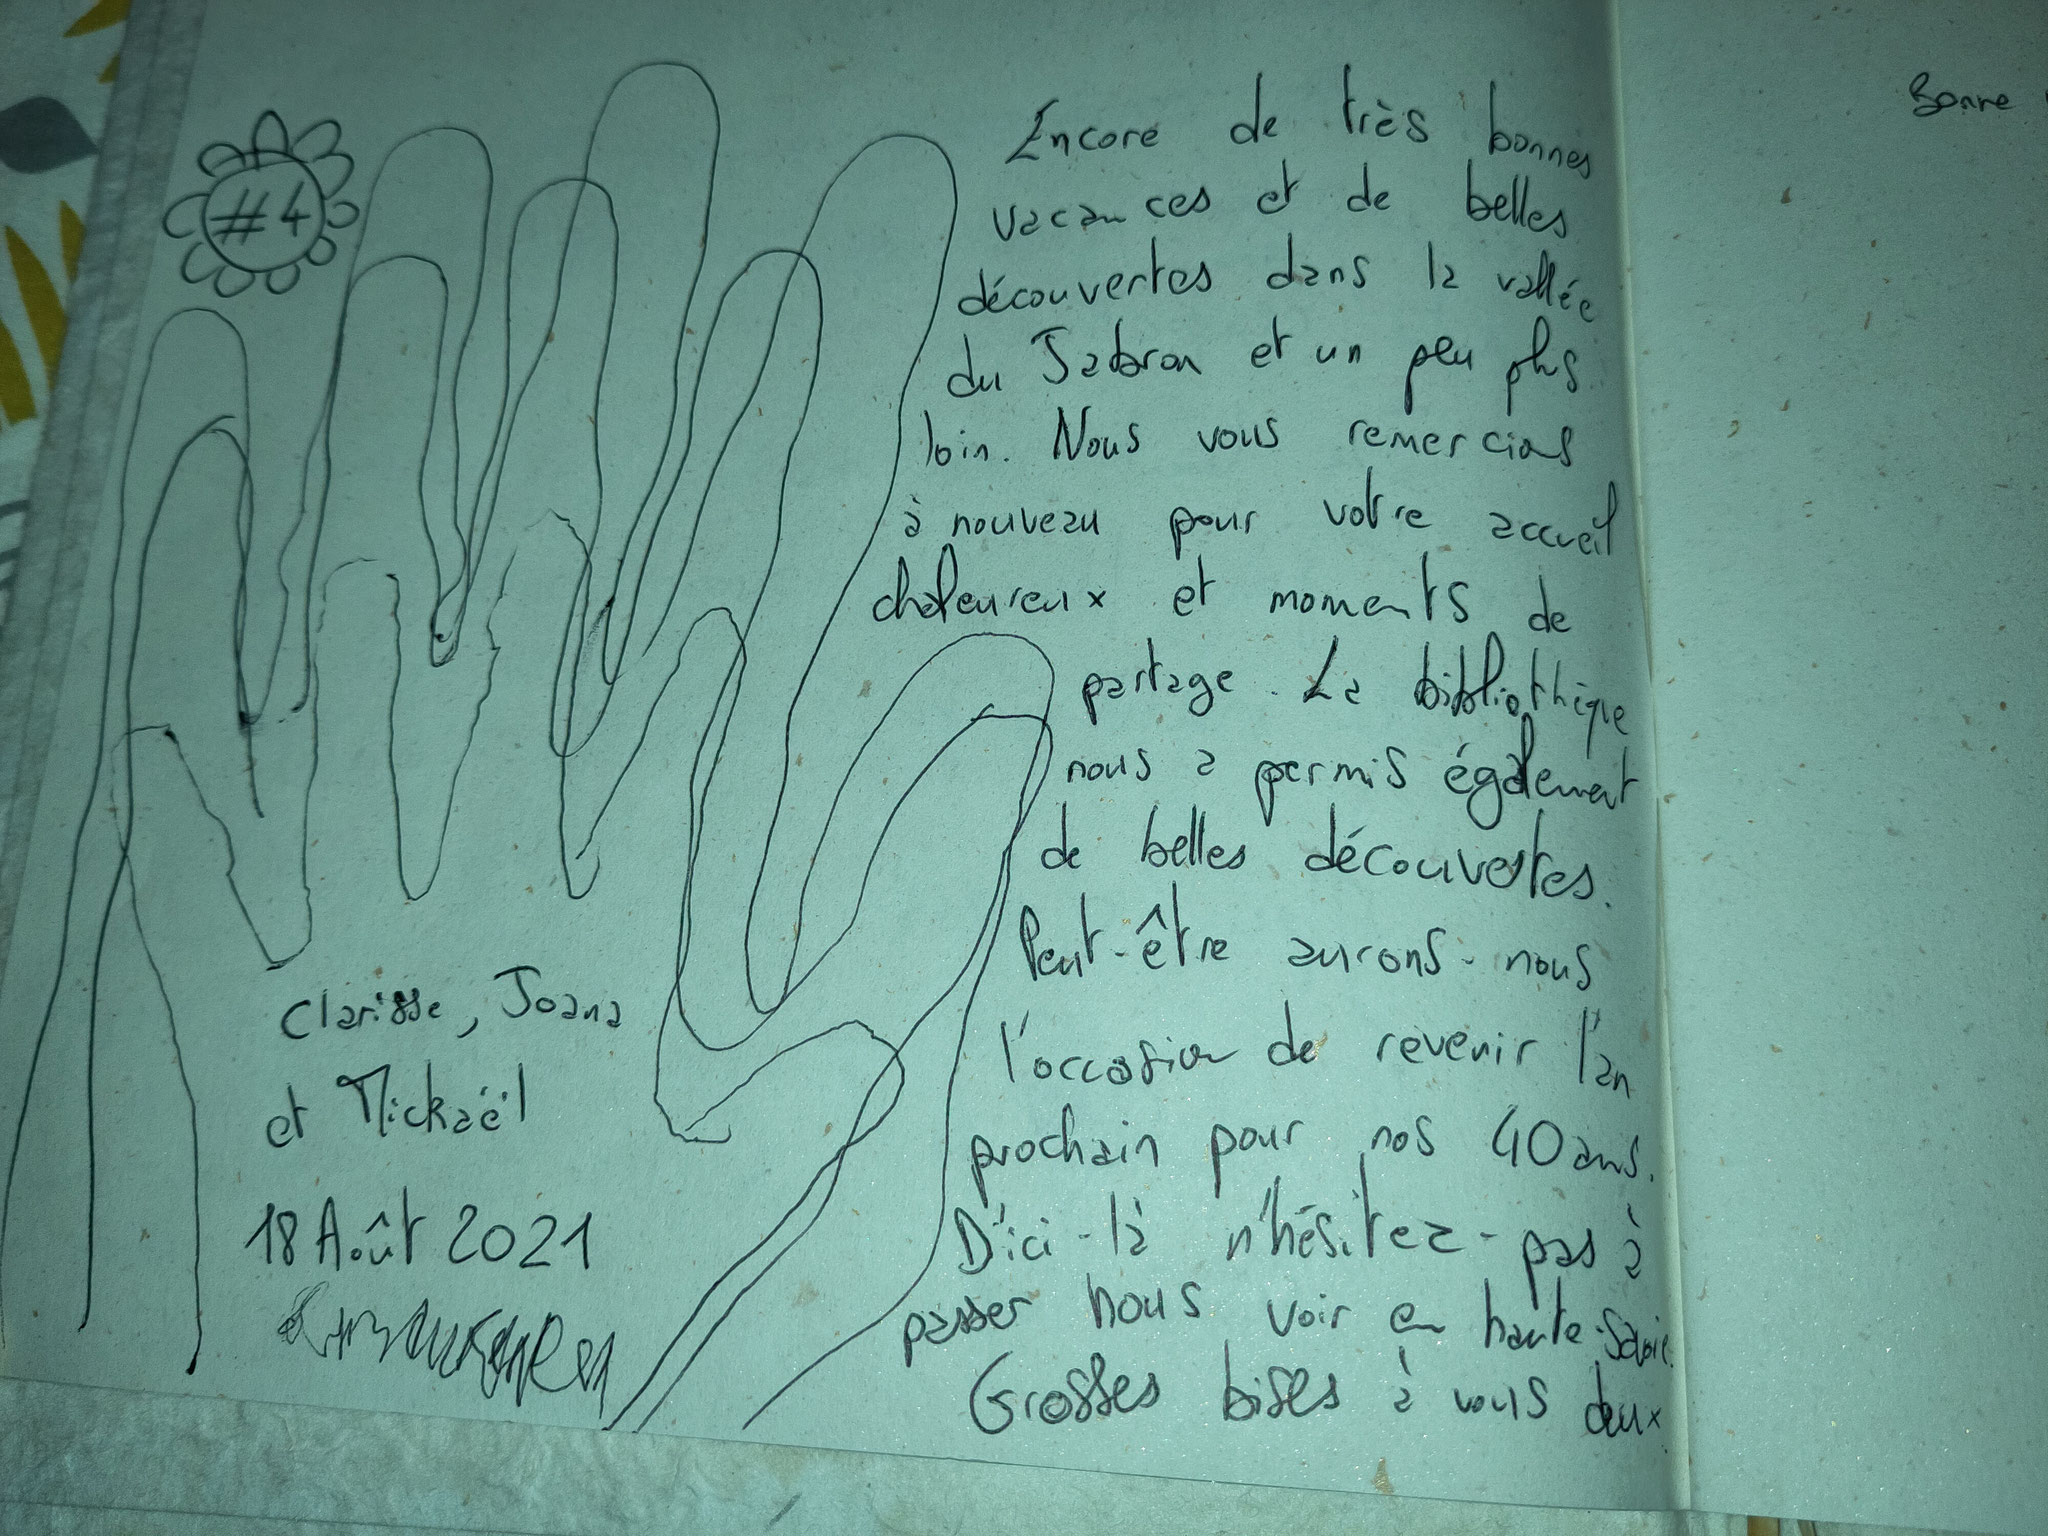 #4
Encore de très bonnes
vacances et de belles
découvertes dans la vallée
du Jabron et un peu plus
loin. Nous vous remercions
à nouveau pour votre accueil
chaleureux et moments de
partage. La bibliothèque
nous a permis également
de belles découvertes.
Peut-être aurons-nous
l'occasion de revenir l'an
prochain pour nos 40 ans.
D'ici-là n'hésitez-pas à
passer nous voir en haute-Savoie.
Grosses bises à vous deux.
Clarisse, Joana
et Mickaël
18 Août 2021
Bonne